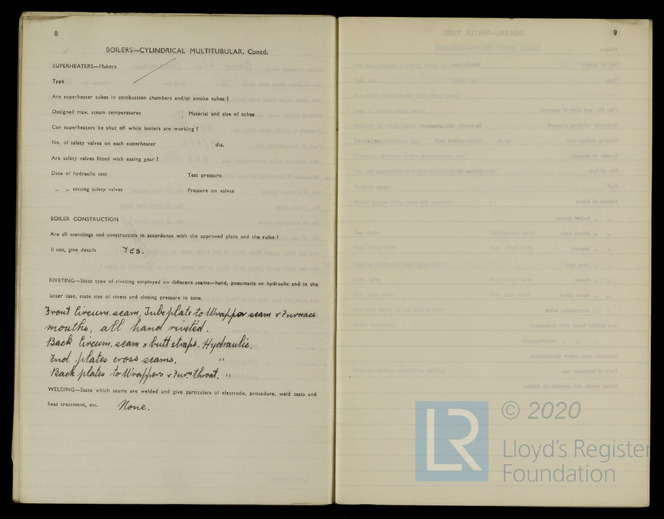 8
BOILERS—CYLINDRICAL MULTITUBULAR, Contd.
SUPERHEATERS—Makers
Type
Are superheater tubes in combustion chambers and/or smoke tubes?
Designed max. steam temperatures Material and size of tubes
Can superheaters be shut off while boilers are working?
No. of safety valves on each superheater dia.
Are safety valves fitted with easing gear?
Date of hydraulic test Test pressure
„ „ setting safety valves Pressure on valves
BOILER CONSTRUCTION
Are all scantlings and construction in accordance with the approved plans and the rules?
If not, give details YES.
RIVETING—State type of riveting employed on different seams—hand, pneumatic or hydraulic and in the
latter case, state size of rivets and closing pressure in tons
Front Circum. seam, Tubeplate to Wrapper seam & Furnace
mouths, all hand riveted.
Back Circum. seam & butt straps. Hydraulic.
End plates cross seams. "
Back plates to Wrappers & Furn throat. "
WELDING—State which seams are welded and give particulars of electrode, procedure, weld tests and
heat treatment, etc. None.
9
LR © 2020
Lloyd's Register
Foundation